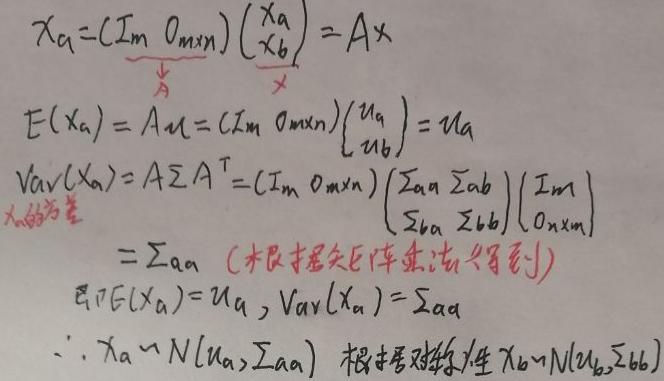 xa=(Im Om×n)(xa xb)=Ax
A x
E(xa)=Au=(Im Om×n)(ua ub)=ua
Var(xa)=AΣA^T=(Im Om×n)(Σaa Σab Σba Σbb)(Im On×m)
xa的方差
=Σaa (根据矩阵乘法得到)
即E(xa)=ua, Var(xa)=Σaa
∴ xa~N(ua,Σaa) 根据对称性 xb~N(ub,Σbb)